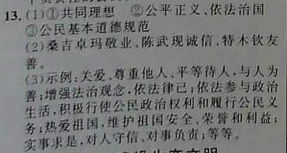 13.(1)①共同理想 ②公平正义、依法治国
③公民基本道德规范
(2)桑吉卓玛敬业、陈武现诚信、特木钦友
善。
(3)示例:关爱、尊重他人,平等待人,与人为
善;增强法治观念,依法律己;依法参与政治
生活,积极行使公民政治权利和履行公民义
务;热爱祖国,维护祖国安全、荣誉和利益;
实事求是,对人守信、对事负责;等等。